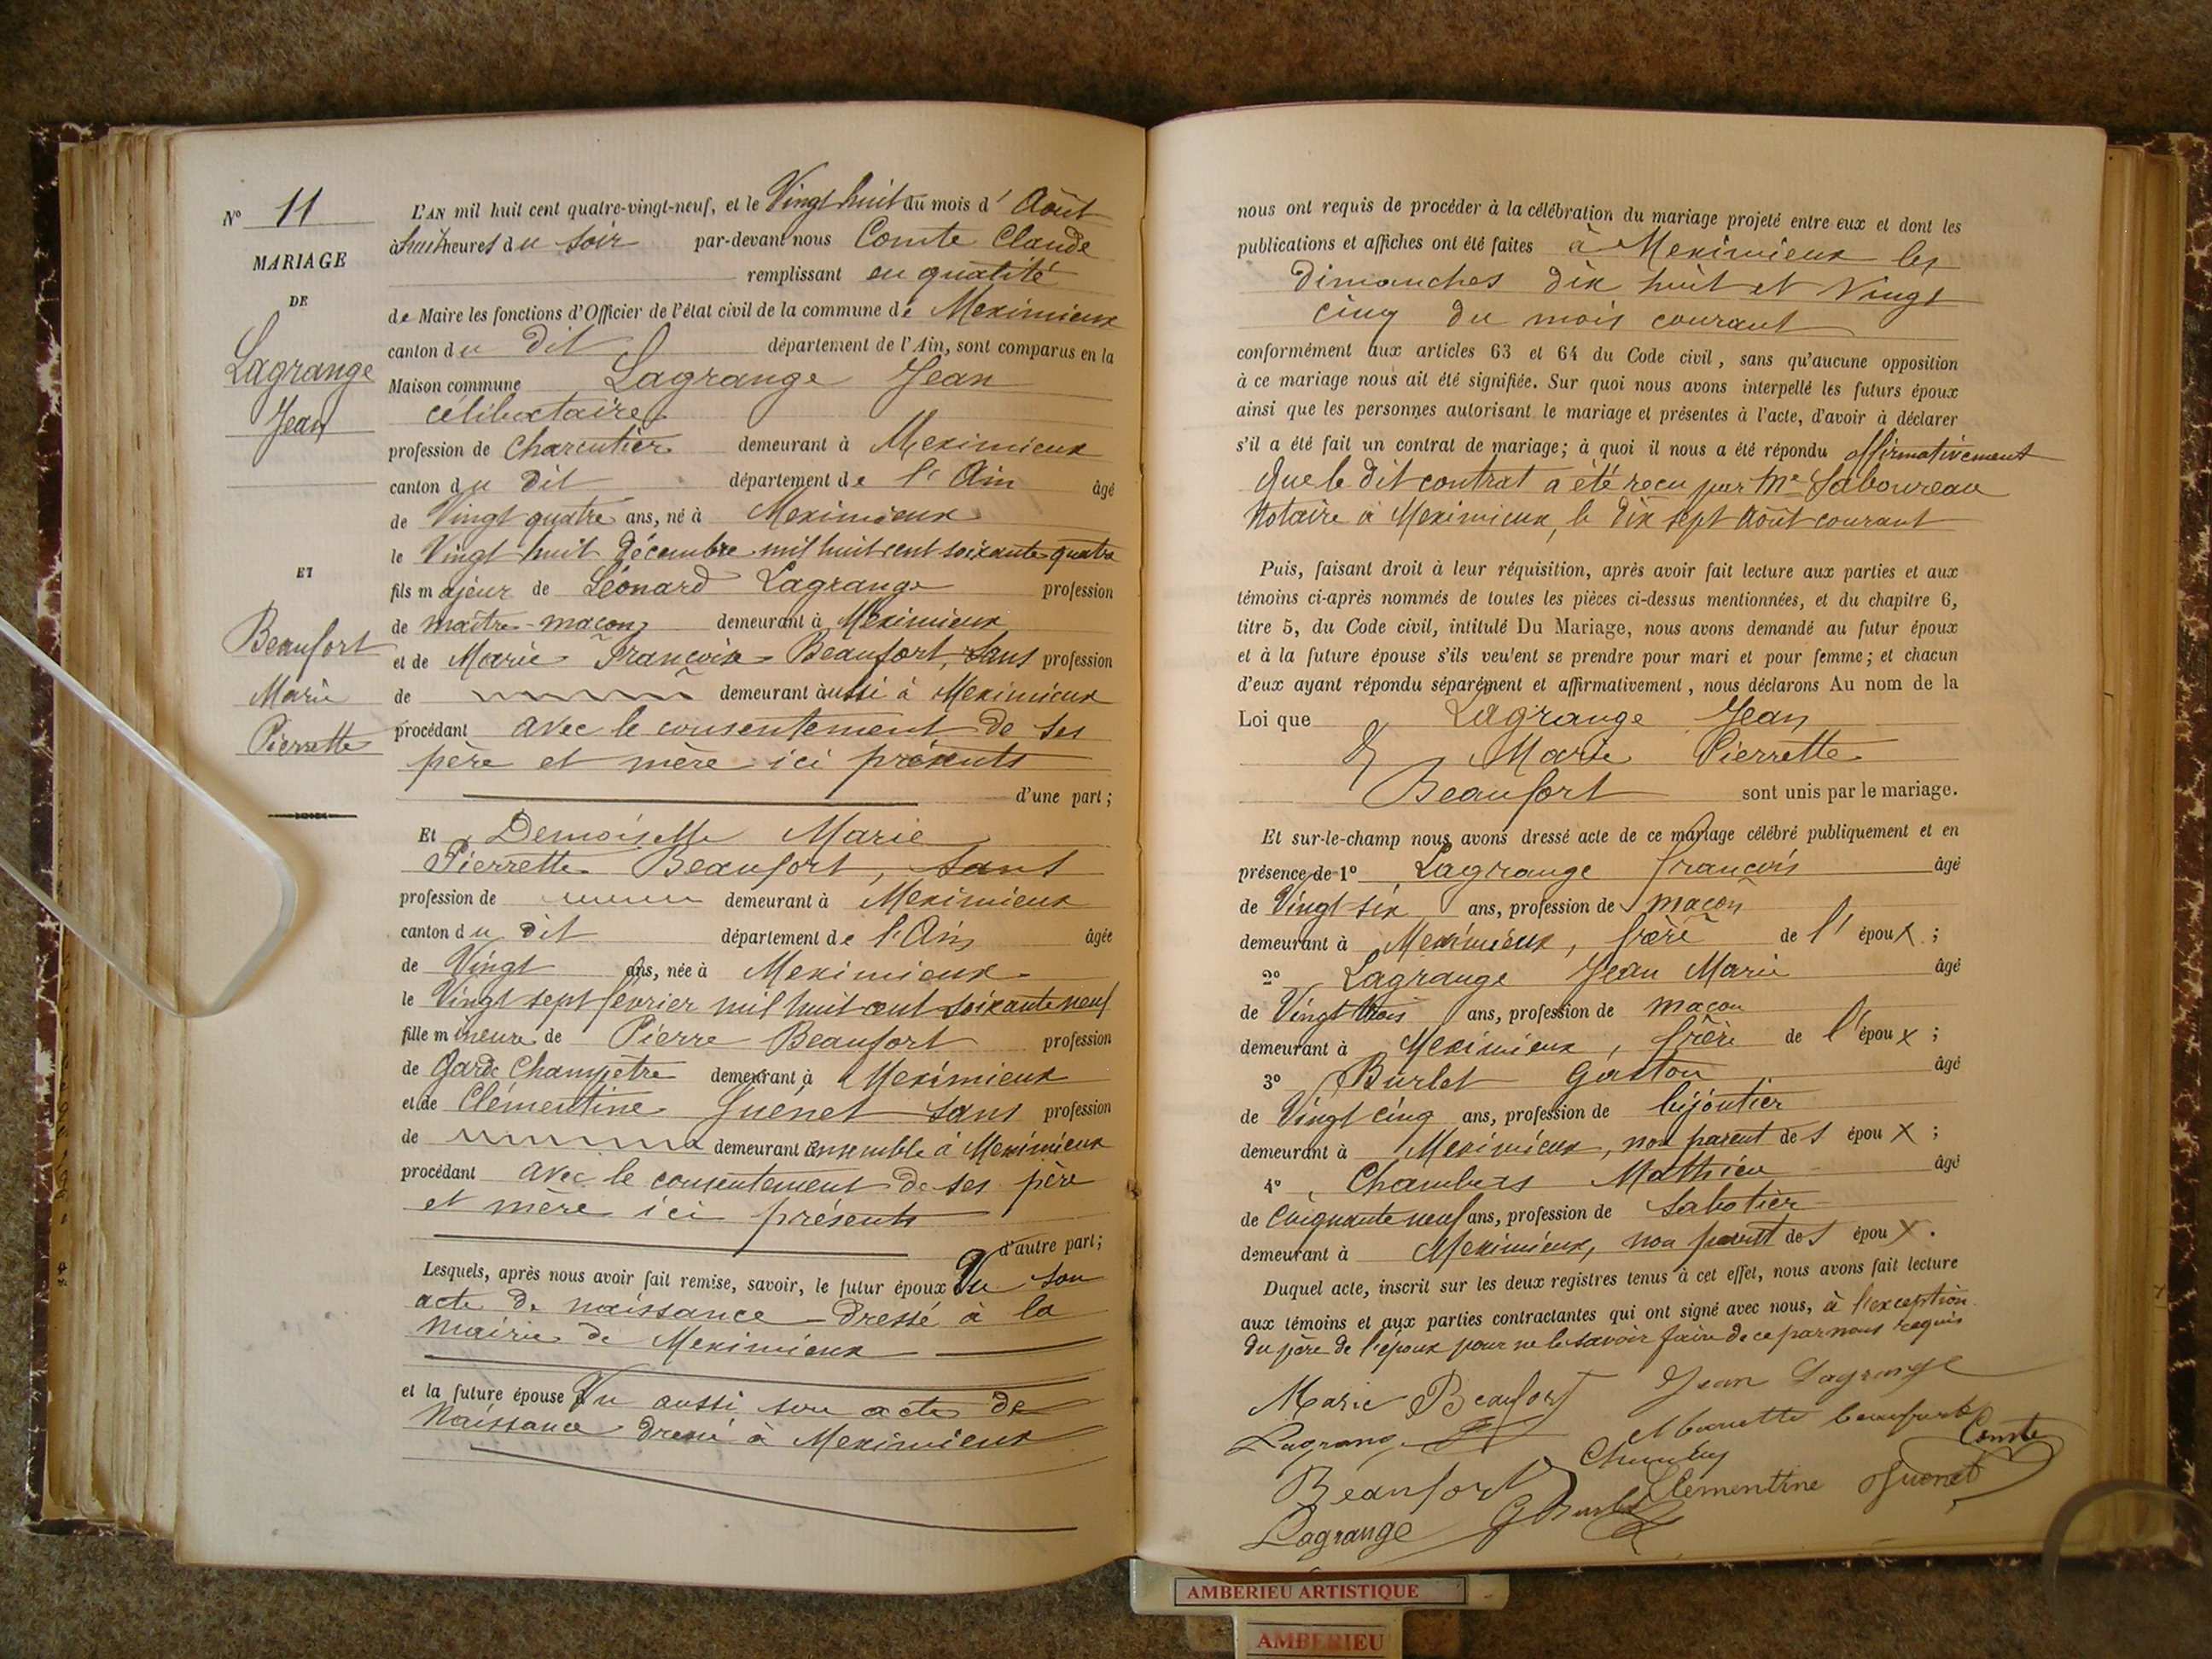 N° 11
MARIAGE
DE
Lagrange
Jean
ET
Beaufort
Marie
Pierrette
L'AN mil huit cent quatre-vingt-neuf, et le Vingt huit du mois d'Août
à huit heures du soir par-devant nous Comte Claude
remplissant en qualité
de Maire les fonctions d'Officier de l'état civil de la commune de Meximieux
canton du dit département de l'Ain, sont comparus en la
Maison commune Lagrange Jean
célibataire
profession de Charcutier demeurant à Meximieux
canton du dit département de l'Ain âgé
de Vingt quatre ans, né à Meximieux
le Vingt huit décembre mil huit cent soixante quatre
fils majeur de Léonard Lagrange profession
de maître-maçon demeurant à Meximieux
et de Marie Françoise Beaufort, sans profession
de demeurant aussi à Meximieux
procédant avec le consentement de ses
père et mère ici présents
d'une part;
Et Demoiselle Marie
Pierrette Beaufort, sans
profession de demeurant à Meximieux
canton du dit département de l'Ain âgée
de Vingt ans, née à Meximieux
le Vingt sept février mil huit cent soixante neuf
fille mineure de Pierre Beaufort profession
de Garde Champêtre demeurant à Meximieux
et de Clémentine Guénet sans profession
de demeurant ensemble à Meximieux
procédant avec le consentement de ses père
et mère ici présents
d'autre part;
Lesquels, après nous avoir fait remise, savoir, le futur époux Vu son
acte de naissance dressé à la
mairie de Meximieux
et la future épouse Vu aussi son acte de
Naissance dressé à Meximieux
nous ont requis de procéder à la célébration du mariage projeté entre eux et dont les
publications et affiches ont été faites à Meximieux les
Dimanches dix huit et Vingt
cinq du mois courant
conformément aux articles 63 et 64 du Code civil, sans qu'aucune opposition
à ce mariage nous ait été signifiée. Sur quoi nous avons interpellé les futurs époux
ainsi que les personnes autorisant le mariage et présentes à l'acte, d'avoir à déclarer
s'il a été fait un contrat de mariage; à quoi il nous a été répondu affirmativement
Que le dit contrat a été recu par Me Saboureau
Notaire à Meximieux, le dix sept Août courant
Puis, faisant droit à leur réquisition, après avoir fait lecture aux parties et aux
témoins ci-après nommés de toutes les pièces ci-dessus mentionnées, et du chapitre 6,
titre 5, du Code civil, intitulé Du Mariage, nous avons demandé au futur époux
et à la future épouse s'ils veulent se prendre pour mari et pour femme; et chacun
d'eux ayant répondu séparément et affirmativement, nous déclarons Au nom de la
Loi que Lagrange Jean
& Marie Pierrette
Beaufort sont unis par le mariage.
Et sur-le-champ nous avons dressé acte de ce mariage célébré publiquement et en
présence de 1° Lagrange François âgé
de Vingt six ans, profession de maçon
demeurant à Meximieux, frère de l'époux;
2° Lagrange Jean Marie âgé
de Vingt trois ans, profession de maçon
demeurant à Meximieux, frère de l'époux;
3° Burlet Gaston âgé
de Vingt cinq ans, profession de bijoutier
demeurant à Meximieux, non parent des époux;
4° Mathieu âgé
de Cinquante neuf ans, profession de Sabotier
demeurant à Meximieux, non parent des époux.
Duquel acte, inscrit sur les deux registres tenus à cet effet, nous avons fait lecture
aux témoins et aux parties contractantes qui ont signé avec nous, à l'exception
du père de l'époux pour ne le savoir faire de ce par nous requis
Marie Beaufort Jean Lagrange
Lagrange
Comte
Beaufort Clementine Guenet
Lagrange G Burlet
AMBERIEU ARTISTIQUE
AMBERIEU